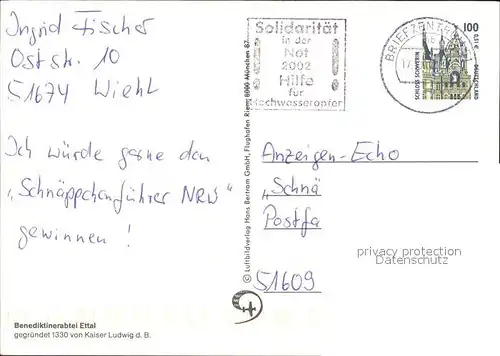 Ingrid Fischer
Oststr. 10
51674 Wiehl
Ich würde gerne den
"Schnäppchenführer NRW"
gewinnen!
Benediktinerabtei Ettal
gegründet 1330 von Kaiser Ludwig d. B.
© Luftbildverlag Hans Bertram GmbH, Flughafen Riem, 8000 München 87
Solidarität
in der
Not
2002
Hilfe
für
Hochwasseropfer
BRIEFZENTRUM
17
100
0,51 €
SCHLOSS SCHWERIN
DEUTSCHLAND
Anzeigen-Echo
"Schnä
Postfa
51609
privacy protection
Datenschutz